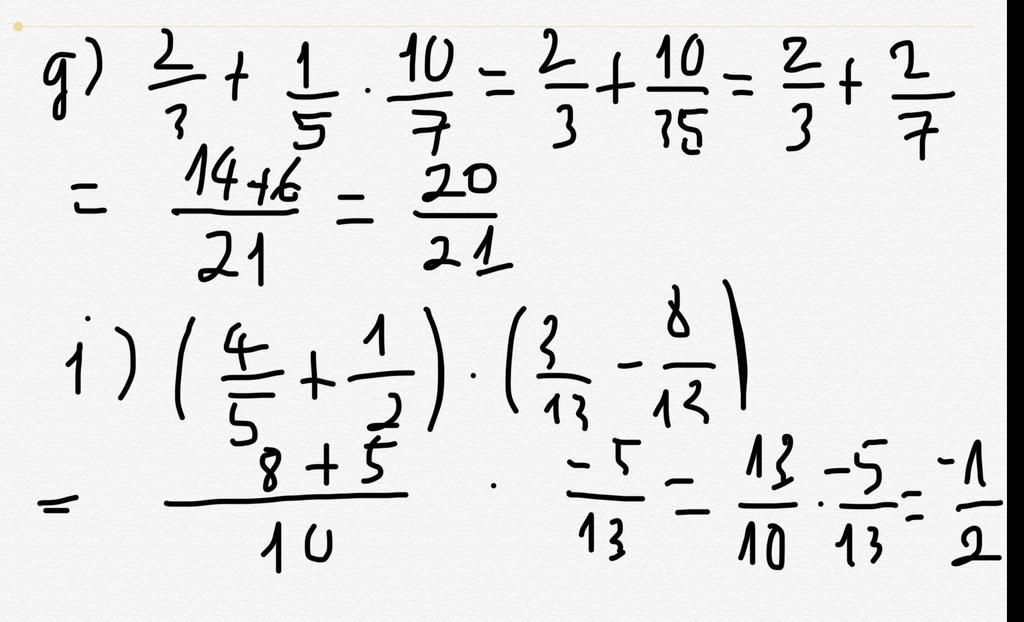 g) 2/3 + 1/5 · 10/7 = 2/3 + 10/35 = 2/3 + 2/7
= 14+6/21 = 20/21
i) (4/5 + 1/2) · (3/13 - 8/13)
= 8+5/10 · -5/13 = 13/10 · -5/13 = -1/2